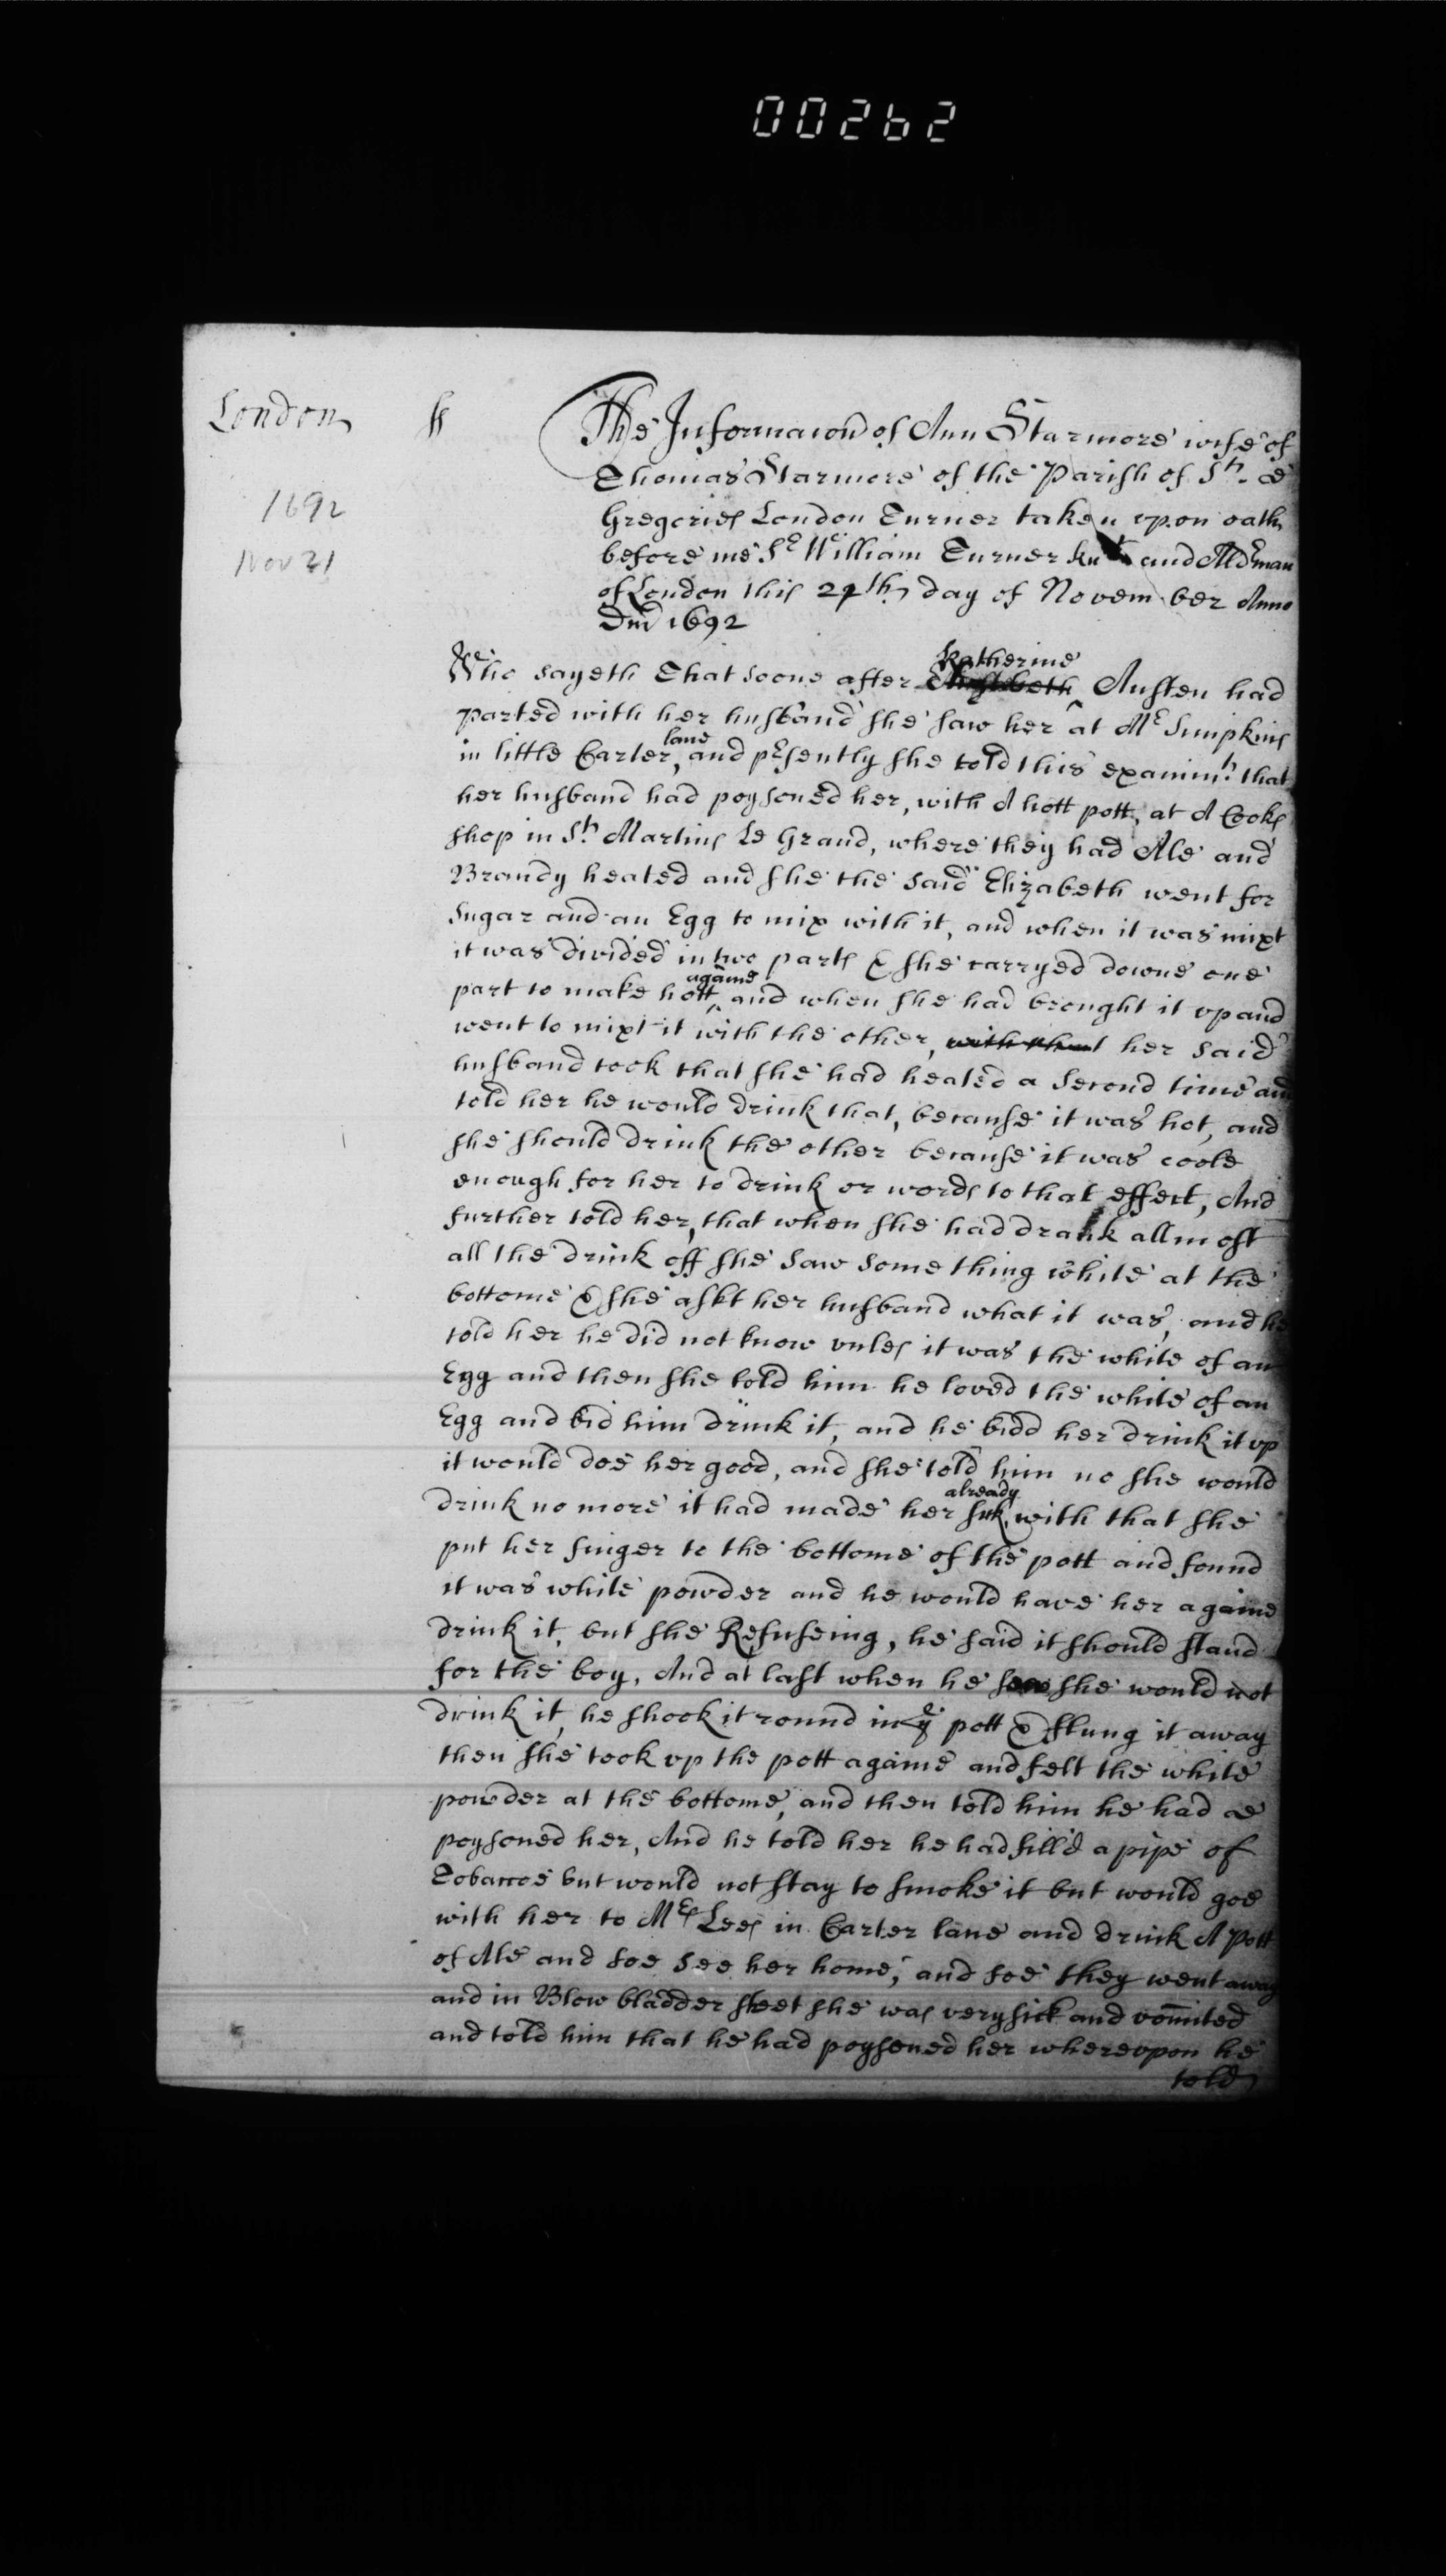 00262
London ss
1692
Nov 21
The Informacon of Ann Starmore wife of
Thomas Starmore of the Parish of St.
Gregories London Turner taken vpon oath
before me Sr William Turner knt and Aldrman
of London this 21th day of November Anno
Dni 1692
Who sayeth That soone after Katherine Austen had
parted with her husband she saw her at Mr Simpkins
in little Carter lane, and prsently she told this examint that
her husband had poysoned her, with A hott pott, at A Cooks
shop in St. Martins Le Grand, where they had Ale and
Brandy heated and she the said Elizabeth went for
sugar and an Egg to mix with it, and when it was mixt
it was divided in two parts & she carryed downe one
part to make hott againe, and when she had brought it vp and
went to mixt it with the other, her said
husband took that she had heated a second time and
told her he would drink that, because it was hot, and
she should drink the other because it was coole
enough for her to drink or words to that effect, And
further told her, that when she had drank allmost
all the drink off she saw some thing white at the
bottome & she askt her husband what it was, and he
told her he did not know vnles it was the white of an
Egg and then she told him he loved the white of an
Egg and bid him drink it, and he bidd her drink it vp
it would doe her good, and she told him no she would
drink no more it had made her sick already, with that she
put her finger to the bottome of the pott and found
it was white powder and he would have her againe
drink it, but she Refuseing, he said it should stand
for the boy, And at last when he see she would not
drink it, he shook it round in ye pott & flung it away
then she took vp the pott againe and felt the white
powder at the bottome, and then told him he had
poysoned her, And he told her he had fill'd a pipe of
Tobaccoe but would not stay to smoke it but would goe
with her to Mrs Lees in Carter lane and drink A Pott
of Ale and soe see her home, and soe they went away
and in Blow bladder steet she was very sick and vomited
and told him that he had poysoned her wherevpon he
told